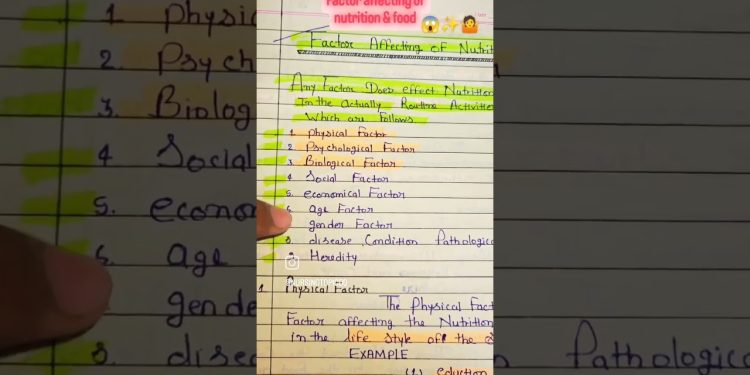 Factor affecting of
nutrition & food
Factor Affecting of Nutrit
Any Factor Does effect Nutrition
In the actually Routine Activities
Which are Follows
1. Physical Factor
2. Psychological Factor
3. Biological Factor
4. Social Factor
5. economical Factor
6. age Factor
gender Factor
8. disease Condition Pathologica
9. Heredity
1. Physical Factor
The Physical Fact
Factor affecting the Nutrition
in the life style off the
EXAMPLE
(1) eduction